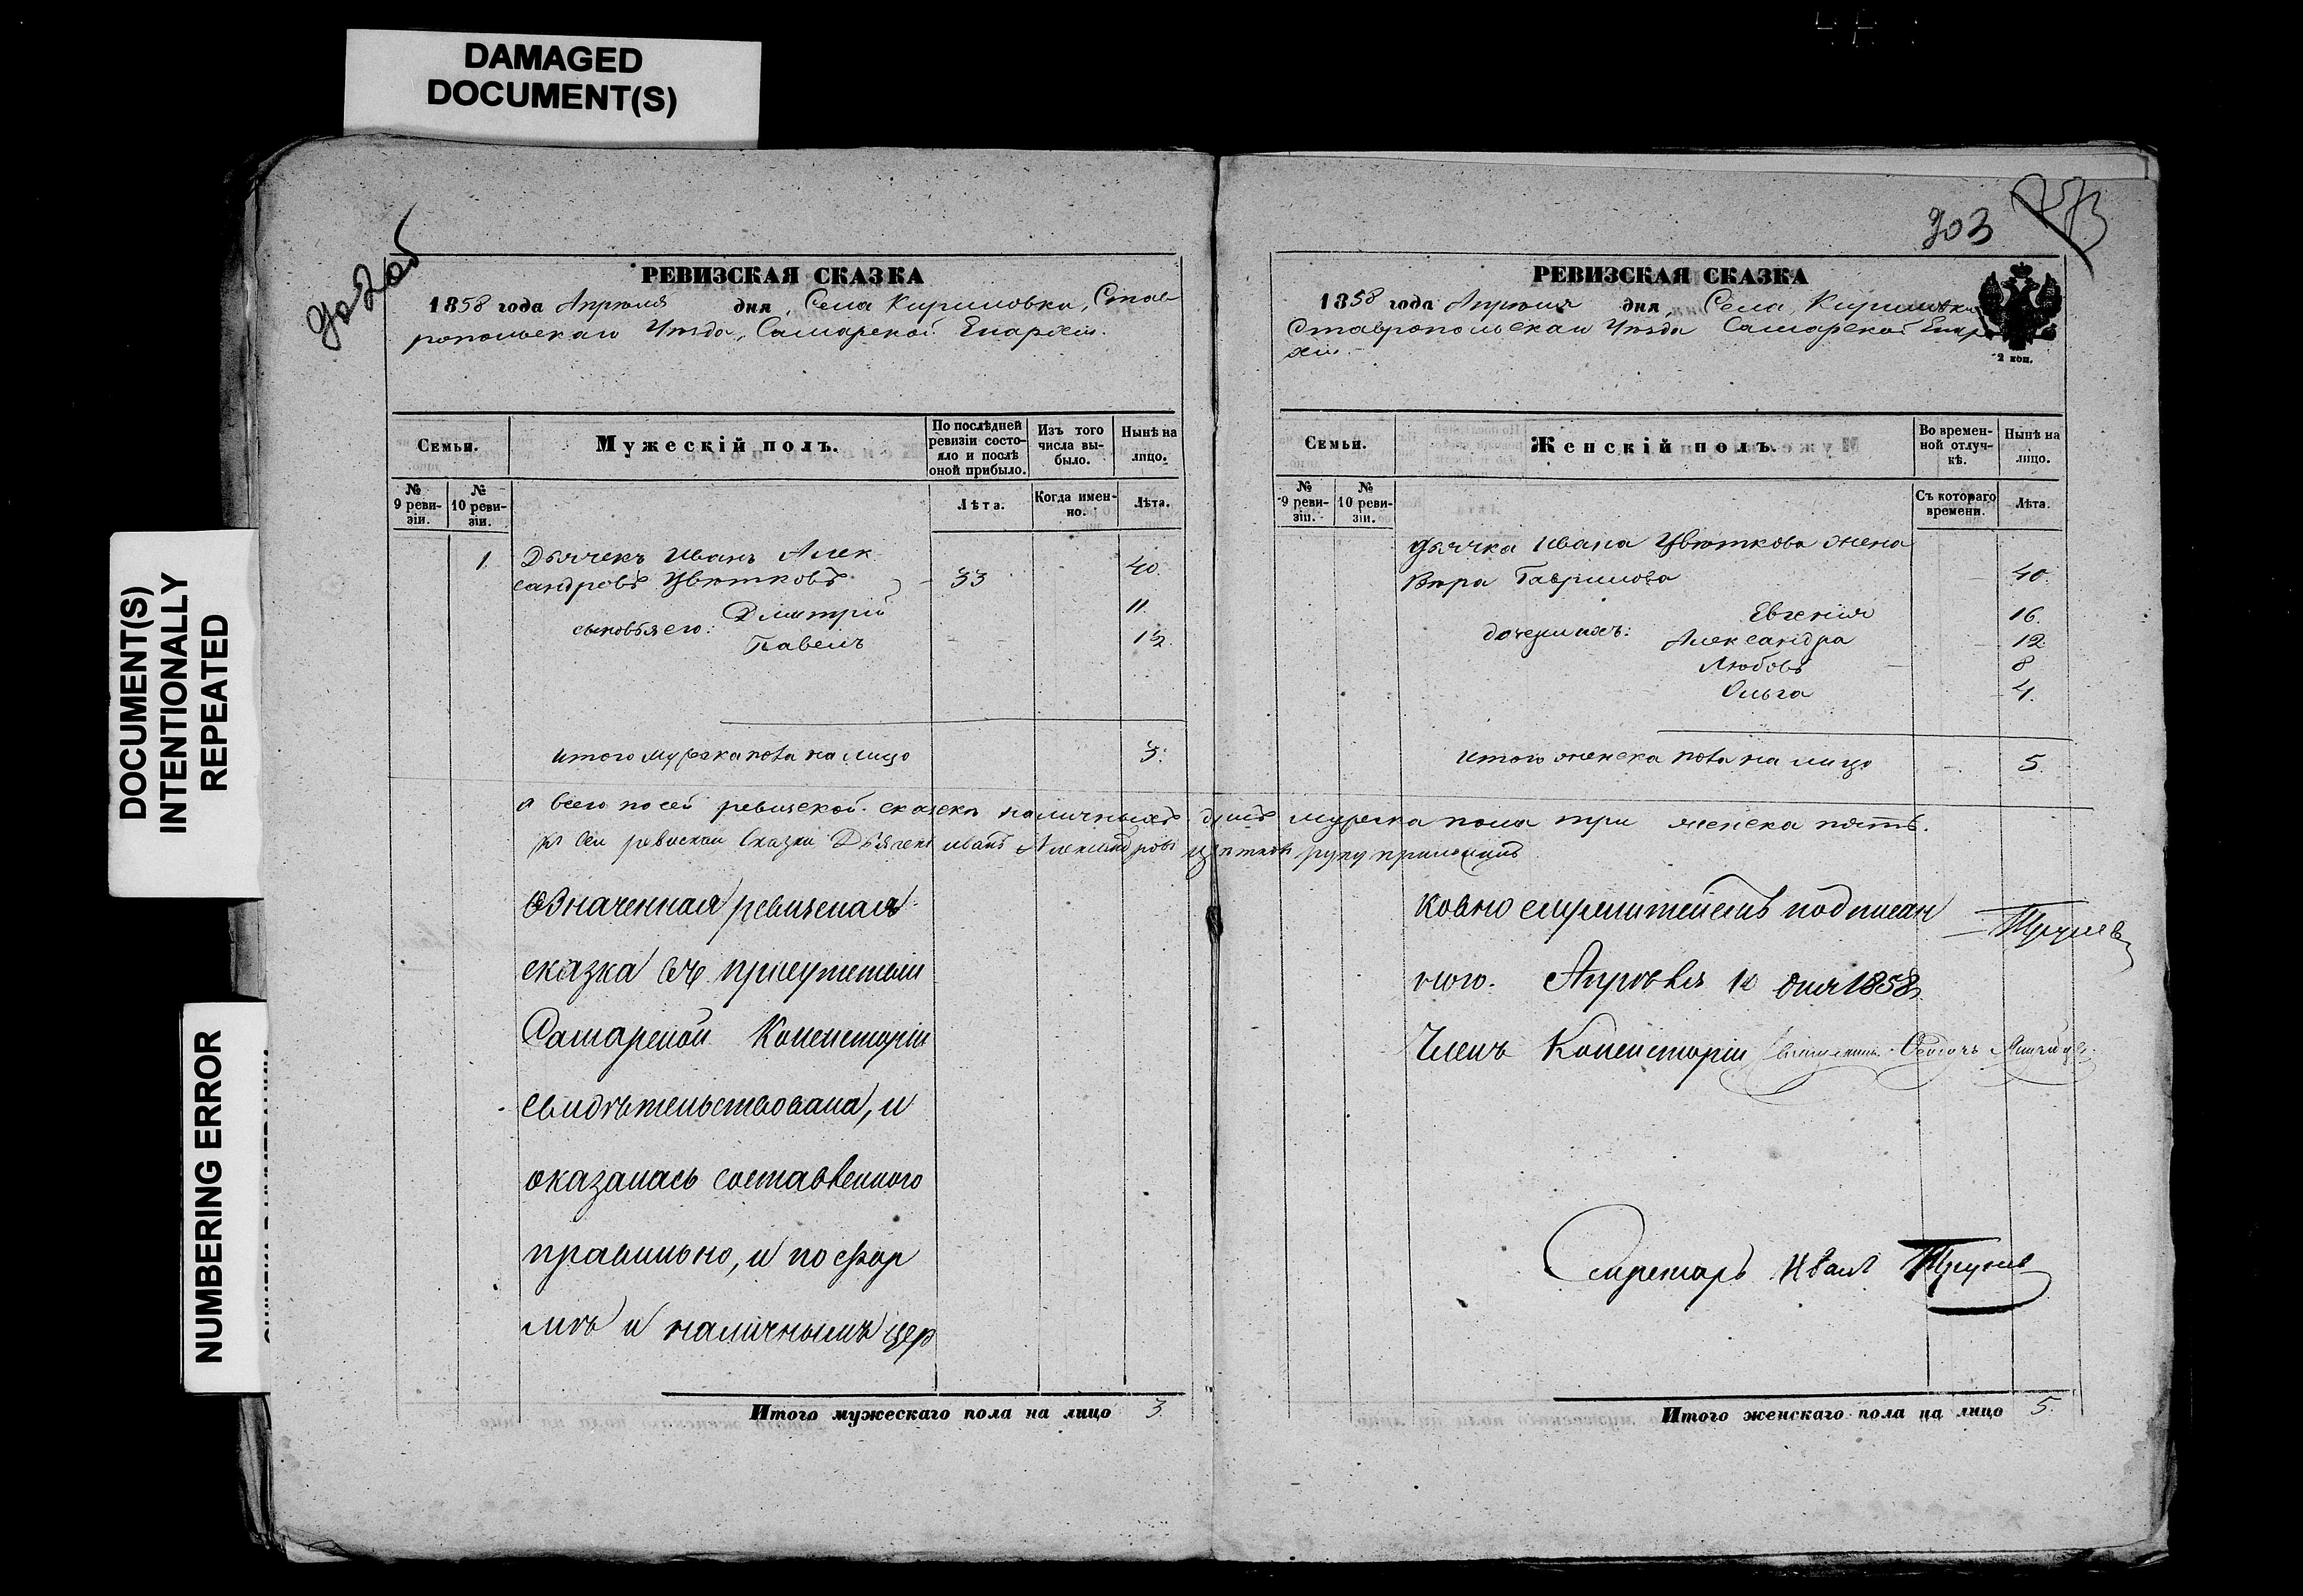 DAMAGED
DOCUMENT(S)
DOCUMENT(S)
INTENTIONALLY
REPEATED
NUMBERING ERROR
РЕВИЗСКАЯ СКАЗКА
1858 года Апрѣля дня, Села Кириловки, Став
ропольскаго Уѣзда, Самарской Епархіи.
Семьи.
Мужескій полъ.
По послѣдней ревизіи состояло и послѣ оной прибыло.
Изъ того числа выбыло.
Нынѣ на лицо.
№ 9 ревизіи.
№ 10 ревизіи.
Лѣта.
Когда именно.
Лѣта.
1. Дьячекъ Иванъ Алек
сандровъ Цвѣтковъ 33 40.
сыновья его: Дмитрій 11.
Павелъ 1½.
итого мужска пола на лицо 3.
а всего по сей ревизской сказкѣ наличныхъ душъ мужска пола три женска пять.
къ сей ревиской сказки Дьячекъ иванъ Александровъ Цвѣтковъ руку приложилъ
Означенная ревизская
сказка въ присутствіи
Самарской Консисторіи
свидѣтельствована, и
оказалась составленного
правильно, и по фор
мѣ и наличнымъ цер
Итого мужескаго пола на лицо 3.
903
РЕВИЗСКАЯ СКАЗКА
1858 года Апрѣля дня, Села, Кириловки
Ставропольскаго Уѣзда Самарской Епар
хіи.
2 коп.
Семьи.
Женскій полъ.
Во временной отлучкѣ.
Нынѣ на лицо.
№ 9 ревизіи.
№ 10 ревизіи.
Съ котораго времени.
Лѣта.
Дьячка Ивана Цвѣткова жена
Вѣра Гаврилова 40.
Евгенія 16.
дочери ихъ: Александра 12
Любовь 8
Ольга 4.
итого женска пола на лицо 5.
ковно служителемъ подписан
ного. Апрѣля 10 дня 1858
Членъ Консисторіи
Секретарь Иванъ
Итого женскаго пола на лицо 5.